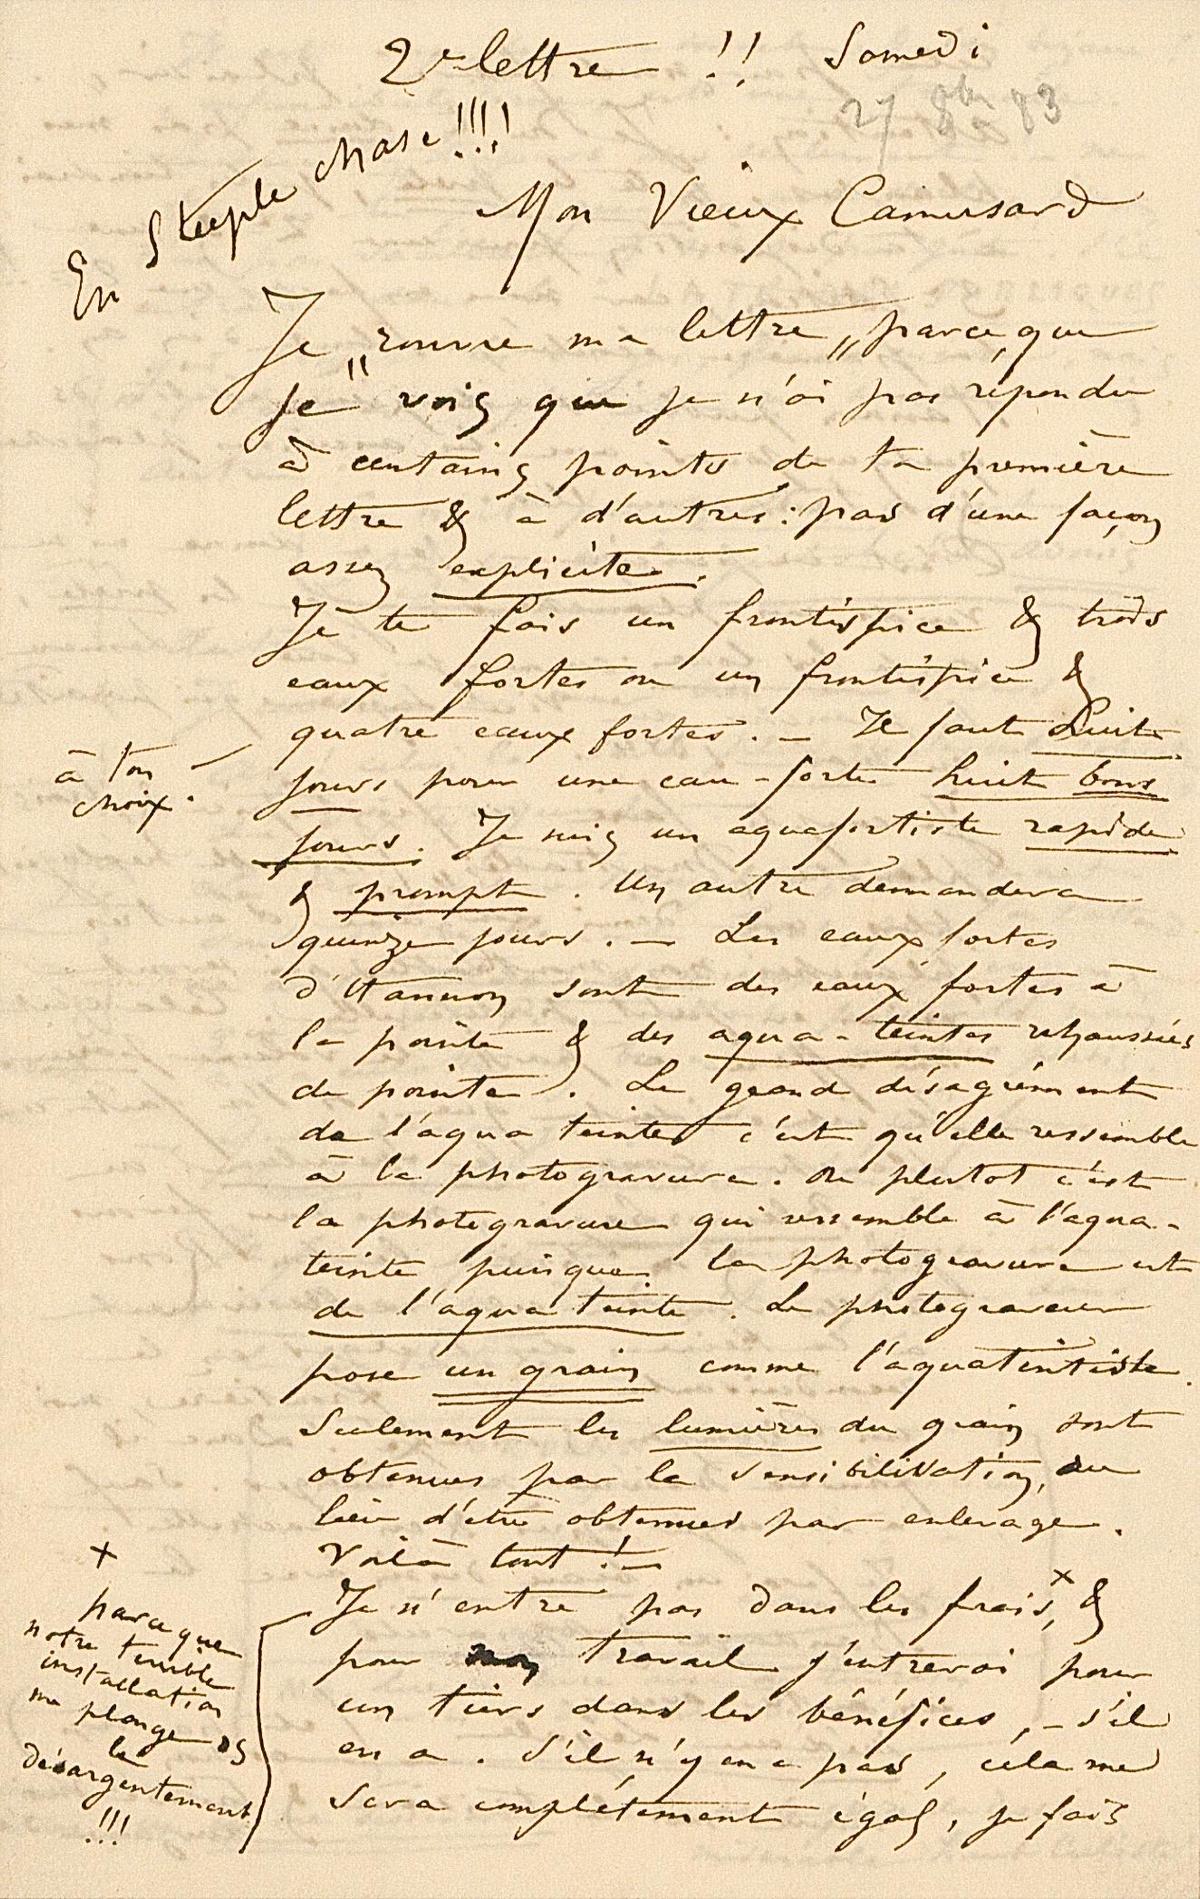 2e lettre !! Samedi
27 8bre 83
En Steeple chase !!!!
Mon Vieux Camusard
Je "rouvre ma lettre" parce que
je vois que je n'ai pas répondu
à certains points de ta première
lettre & à d'autres : pas d'une façon
assez explicite.
Je te fais un frontispice & trois
eaux fortes ou un frontispice &
quatre eaux fortes. — Il faut huit
à ton
choix.
jours pour une eau-forte huit bons
jours. Je suis un aquafortiste rapide
& prompt. Un autre demandera
quinze jours. — Les eaux fortes
d'Hannon sont des eaux fortes à
la pointe & des aqua-teintes rehaussées
de pointe. Le grand désagrément
de l'aqua teinte c'est qu'elle ressemble
à la photogravure. ou plutot c'est
la photogravure qui ressemble à l'aqua-
teinte puisque la photogravure est
de l'aqua teinte. Le photograveur
pose un grain comme l'aquatintiste.
Seulement les lumières du grain sont
obtenues par la sensibilisation, au
lieu d'être obtenues par enlevage.
Voilà tout ! —
Je n'entre pas dans les frais,× &
pour mon travail j'entrerai pour
un tiers dans les bénéfices, — s'il
en a. S'il n'y en a pas, céla me
sera complétement égal, je fais
×
parce que
notre terrible
installation
me plonge ds
le
désargentement
!!!